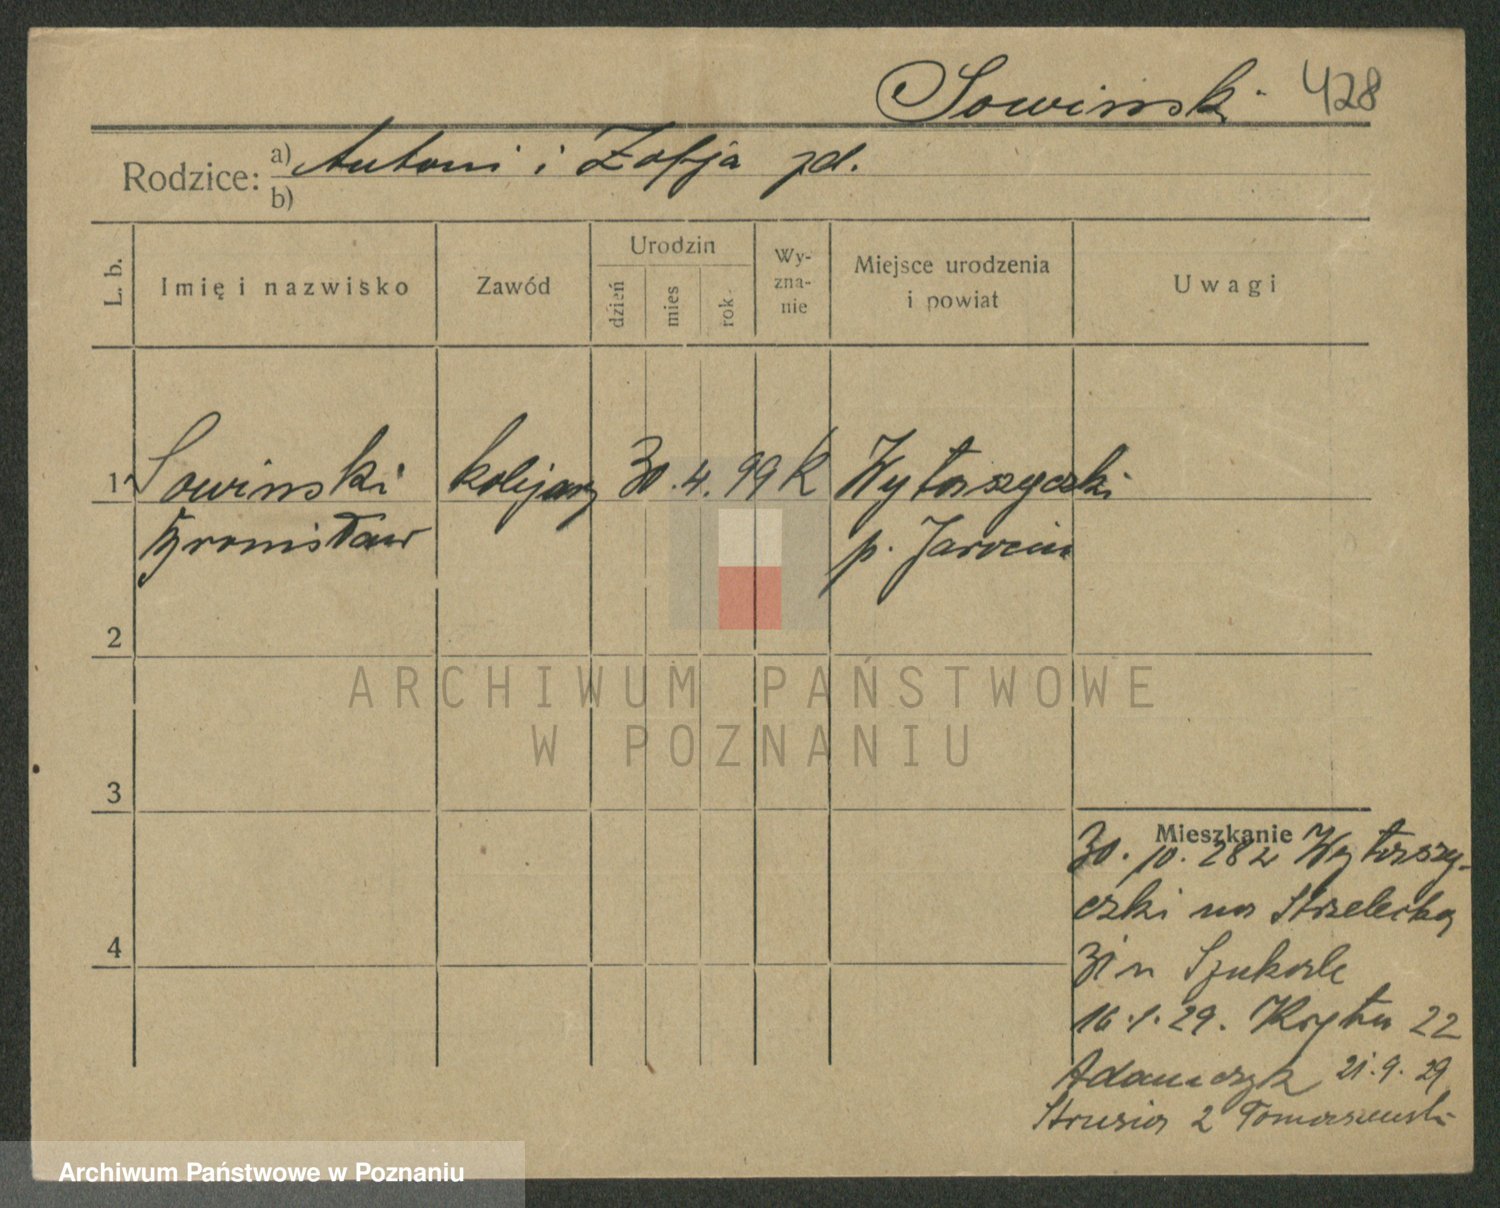 Sowinski 428
Rodzice: a) Antoni i Zofja zd.
b)
L. b. Imię i nazwisko Zawód Urodzin dzień mies rok Wy-zna-nie Miejsce urodzenia i powiat Uwagi
1 Sowinski kolejarz 30. 4. 99 K Wytaszyczki
Bronisław p. Jarocin
2
ARCHIWUM PAŃSTWOWE
W POZNANIU
3
Mieszkanie
30. 10. 28 z Wytaszy-
czki na Strzelecka
31 u
16.1.29. Kręta 22
Adamczyk 21.9.29
Strusia 2 Tomaszewski
4
Archiwum Państwowe w Poznaniu